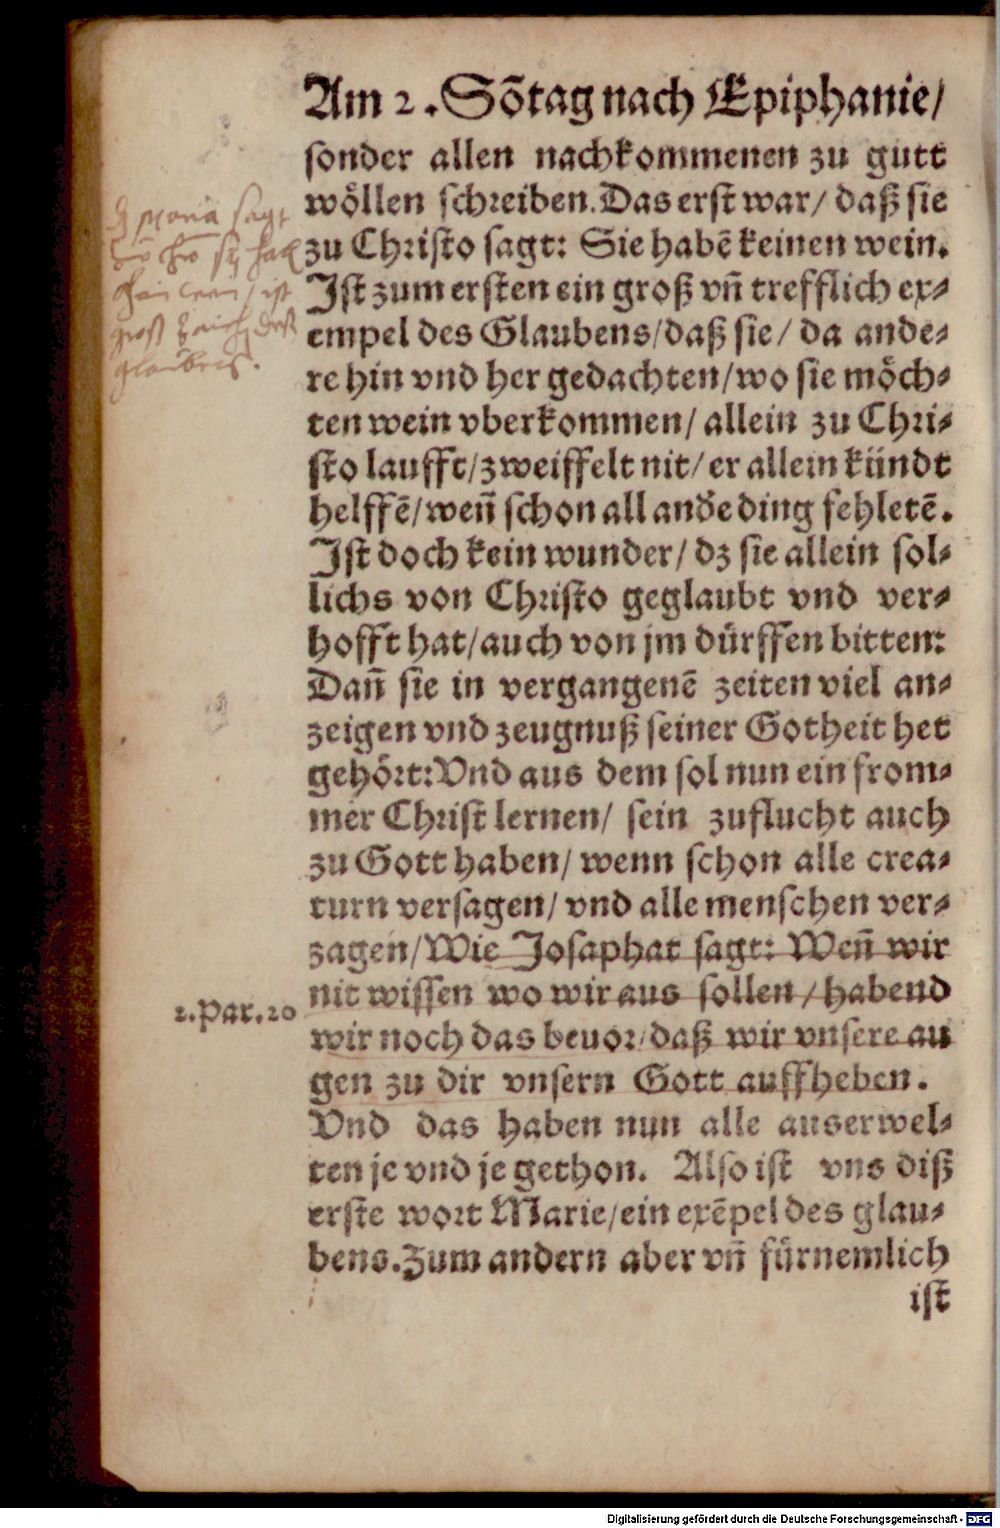 Am 2. Sõtag nach Epiphanie/
sonder allen nachkommenen zu gutt
wöllen schreiben. Das erst war/ daß sie
zu Christo sagt: Sie habẽ keinen wein.
Ist zum ersten ein groß vñ trefflich ex-
empel des Glaubens/daß sie/ da ande-
re hin vnd her gedachten/wo sie möch-
ten wein vberkommen/ allein zu Chri-
sto laufft/zweiffelt nit/ er allein kündt
helffẽ/weñ schon all and̃e ding fehletẽ.
Ist doch kein wunder/ dz sie allein sol-
lichs von Christo geglaubt vnd ver-
hofft hat/auch von jm dürffen bitten:
Dañ sie in vergangenẽ zeiten viel an-
zeigen vnd zeugnuß seiner Gotheit het
gehört: Vnd aus dem sol nun ein from-
mer Christ lernen/ sein zuflucht auch
zu Gott haben/ wenn schon alle crea-
turn versagen/ vnd alle menschen ver-
zagen/Wie Josaphat sagt: Weñ wir
nit wissen wo wir aus sollen/habend
2. Par. 20
wir noch das beuor/daß wir vnsere au
gen zu dir vnsern Gott auffheben.
Vnd das haben nun alle auserwel-
ten je vnd je gethon. Also ist vns diß
erste wort Marie/ein exẽpel des glau-
bens. Zum andern aber vñ fürnemlich
ist
Maria sagt
ist
groß
glaubens.
Digitalisierung gefördert durch die Deutsche Forschungsgemeinschaft - DFG